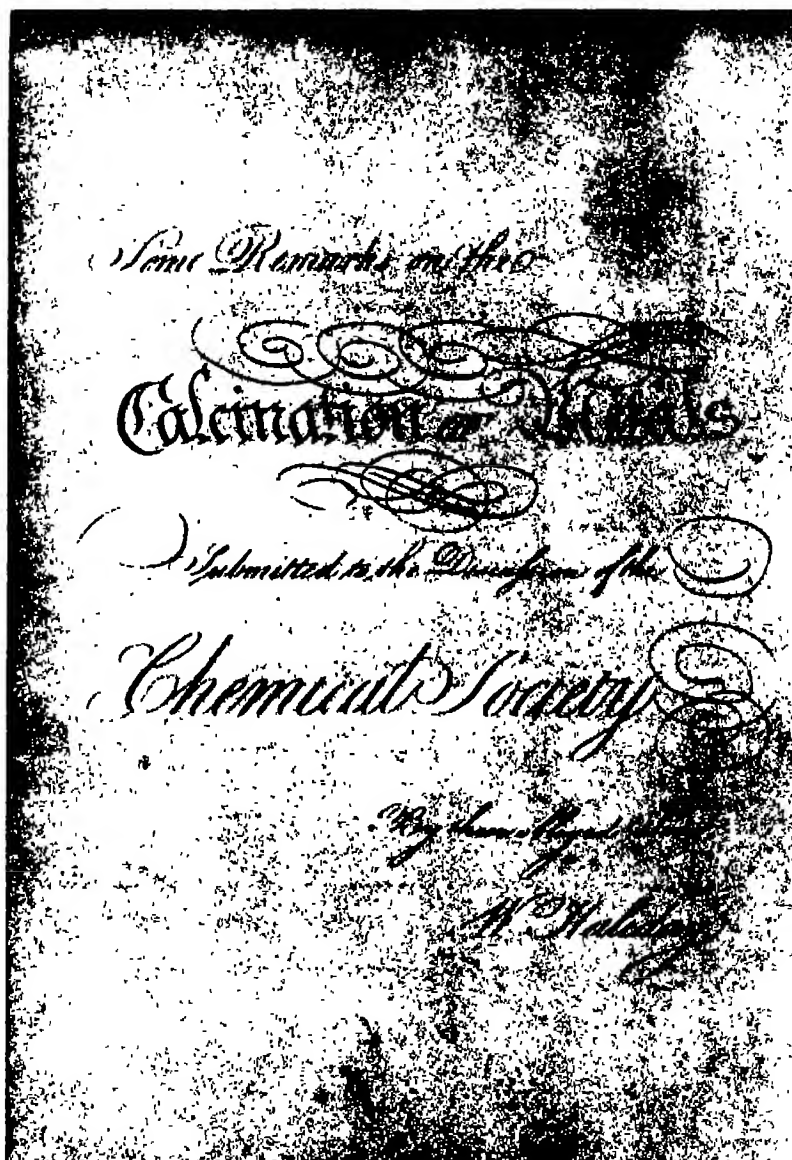 Some Remarks on the
Calcination of Metals
Submitted to the Discussion of the
Chemical Society
By
W Haliday